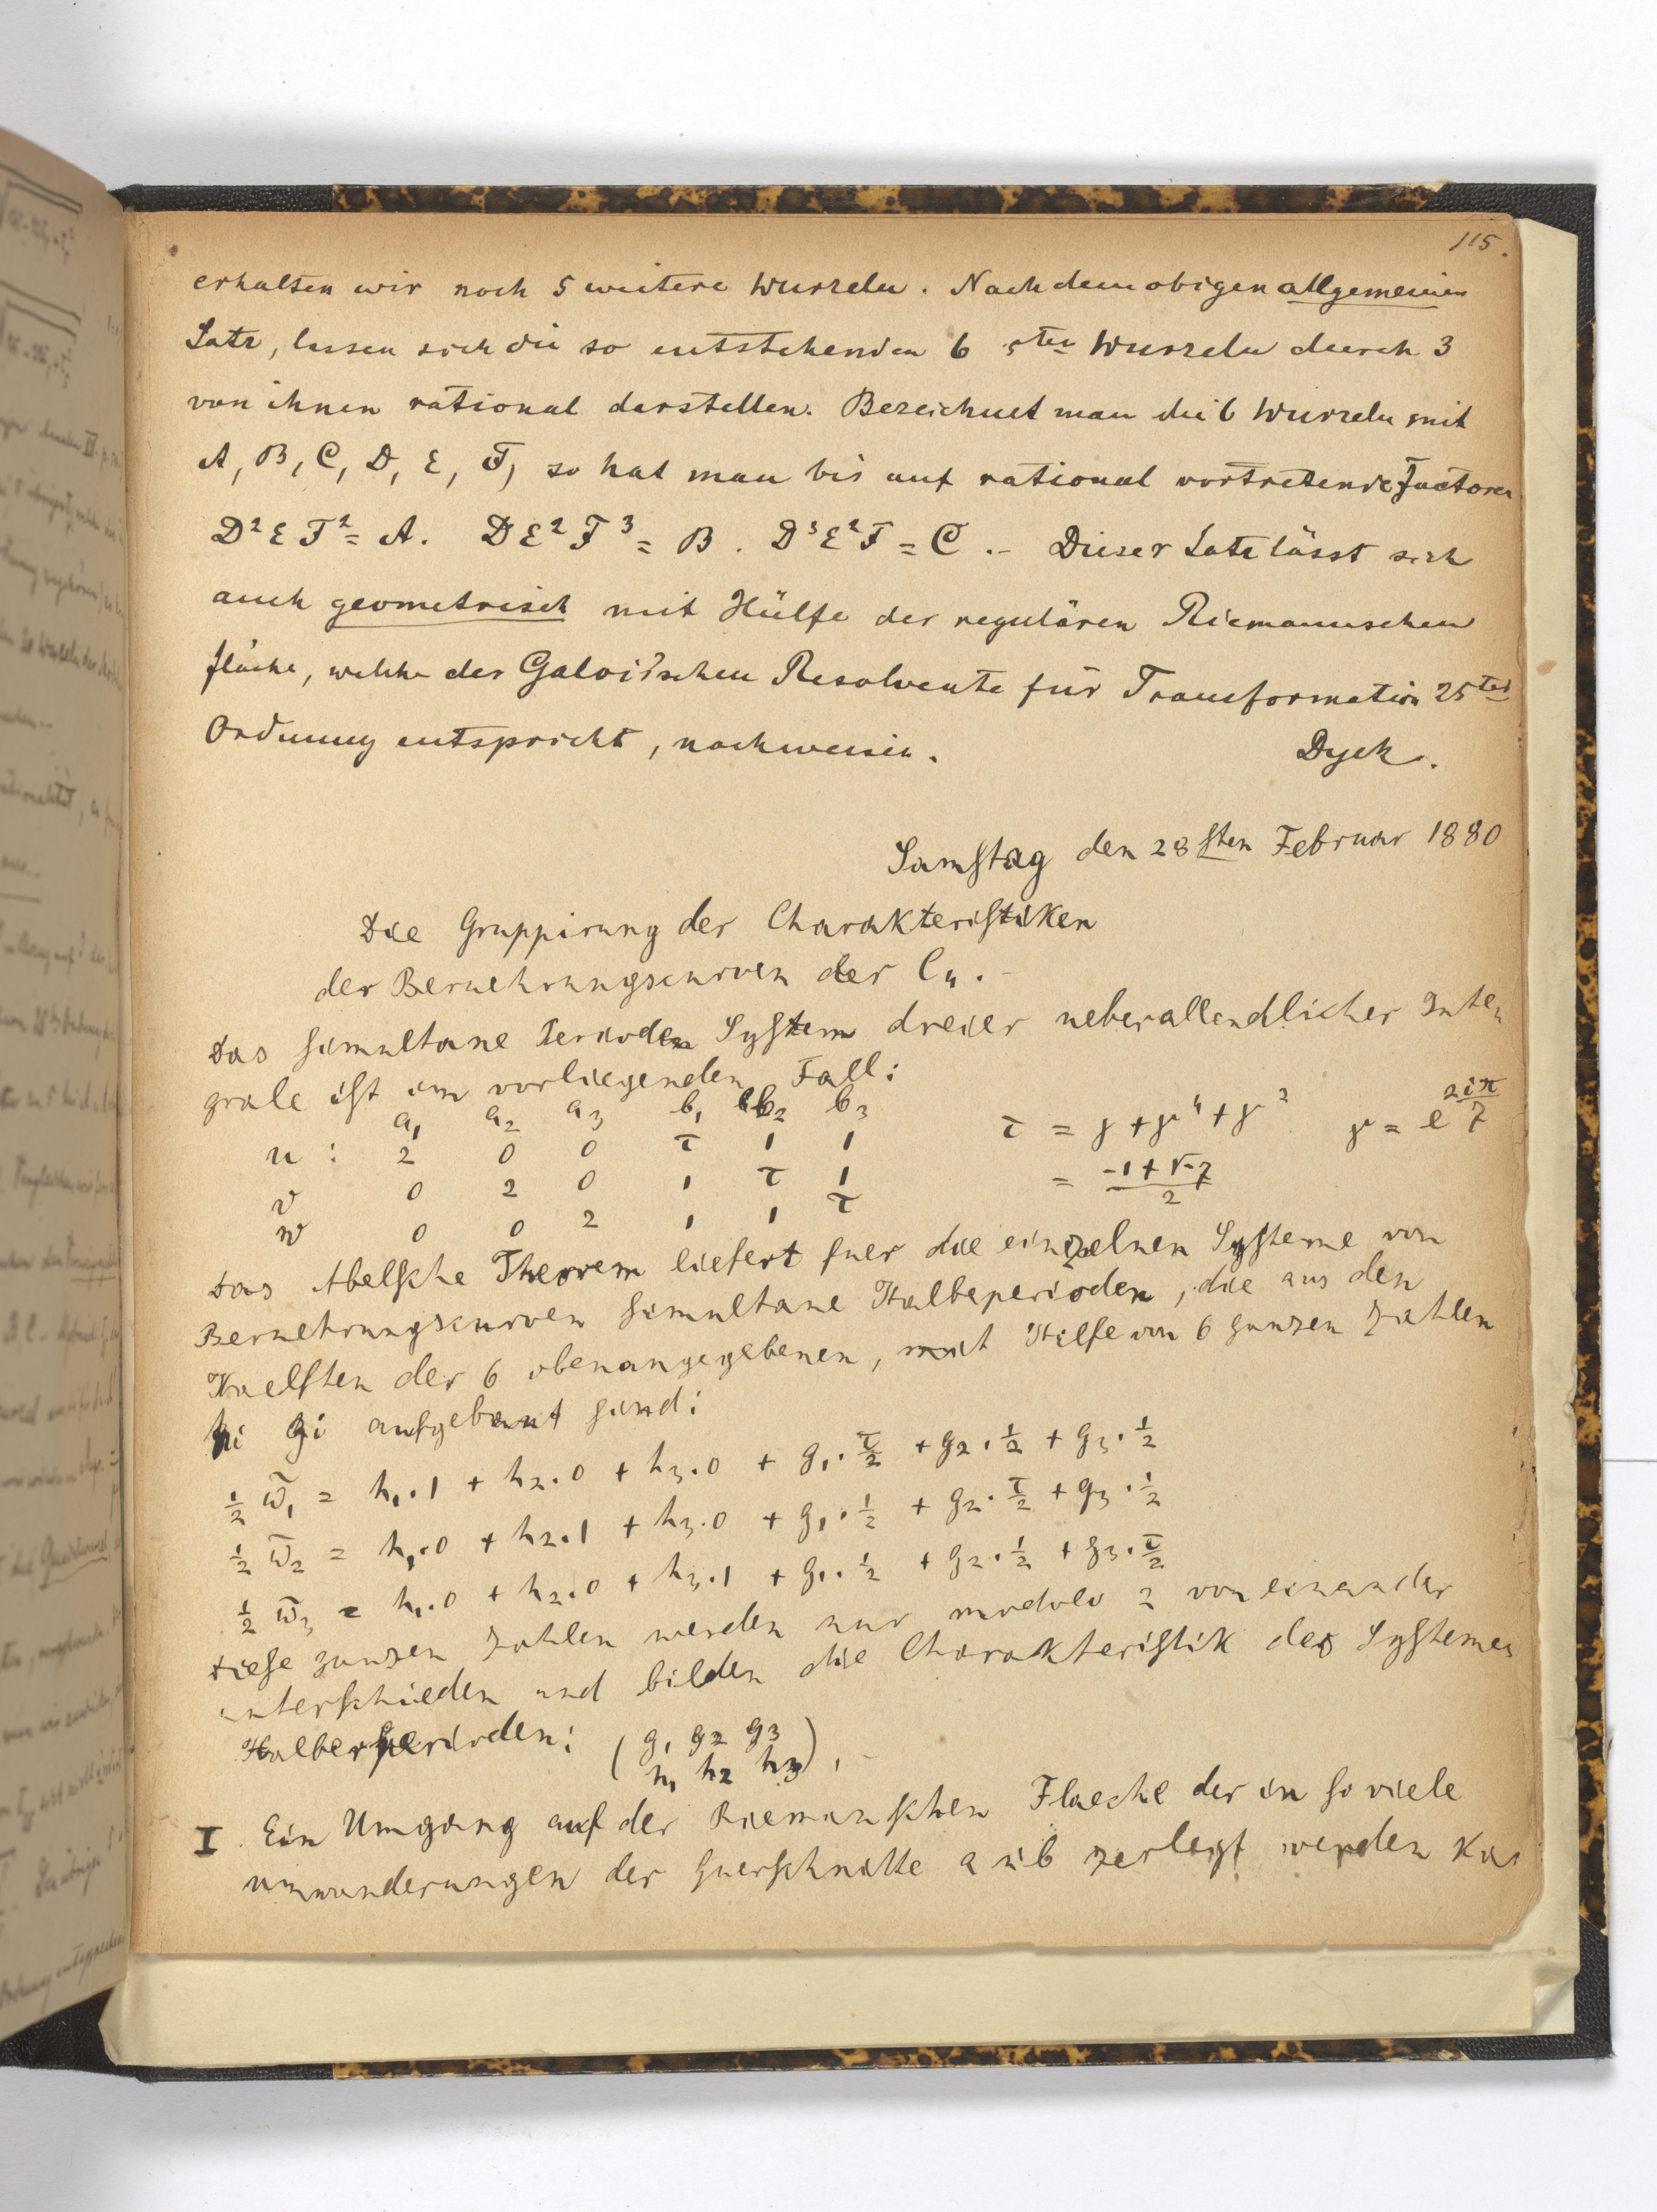 115.
erhalten wir noch 5 weitere Wurzeln. Nach dem obigen allgemeinen
Satz, lassen sich die so entstehenden 6 5ten Wurzeln durch 3
von ihnen rational darstellen. Bezeichnet man die 6 Wurzeln mit
A, B, C, D, E, F, so hat man bis auf rational vortretende Factoren
D²EF² = A. DE²F³ = B. D³E²F = C .– Dieser Satz lässt sich
auch geometrisch mit Hülfe der regulären Riemannschen
Fläche, welche der Galois'schen Resolvente für Transformation 25ter
Ordnung entspricht, nachweisen.
Dyck.
Samstag den 28sten Februar 1880
Die Gruppirung der Charakteristiken
der Beruehrungscurven der C₄.–
Das simultane Perioden System dreier ueberallendlicher Inte
grale ist im vorliegenden Fall:
a₁ a₂ a₃ b₁ b₂ b₃
u : 2 0 0 τ 1 1 τ = γ + γ⁴ + γ² γ = e^{2iπ/7}
v 0 2 0 1 τ 1 = (-1+√-7)/2
w 0 0 2 1 1 τ
Das Abelsche Theorem liefert fuer die einzelnen Systeme von
Beruehrungscurven simultane Halbeperioden, die aus den
Haelften der 6 obenangegebenen, mit Hilfe von 6 ganzen Zahlen
hi gi aufgebaut sind:
½ ω̄₁ = h₁.1 + h₂.0 + h₃.0 + g₁.τ/2 + g₂.½ + g₃.½
½ ω̄₂ = h₁.0 + h₂.1 + h₃.0 + g₁.½ + g₂.τ/2 + g₃.½
½ ω̄₃ = h₁.0 + h₂.0 + h₃.1 + g₁.½ + g₂.½ + g₃.τ/2
Diese ganzen Zahlen werden nur modulo 2 von einander
unterschieden und bilden die Charakteristik des Systemes
Halberperioden: (g₁ g₂ g₃
h₁ h₂ h₃).–
I. Ein Umgang auf der Riemanschen Flaeche der in so viele
umwanderungen der Querschnitte a u b zerlegt werden